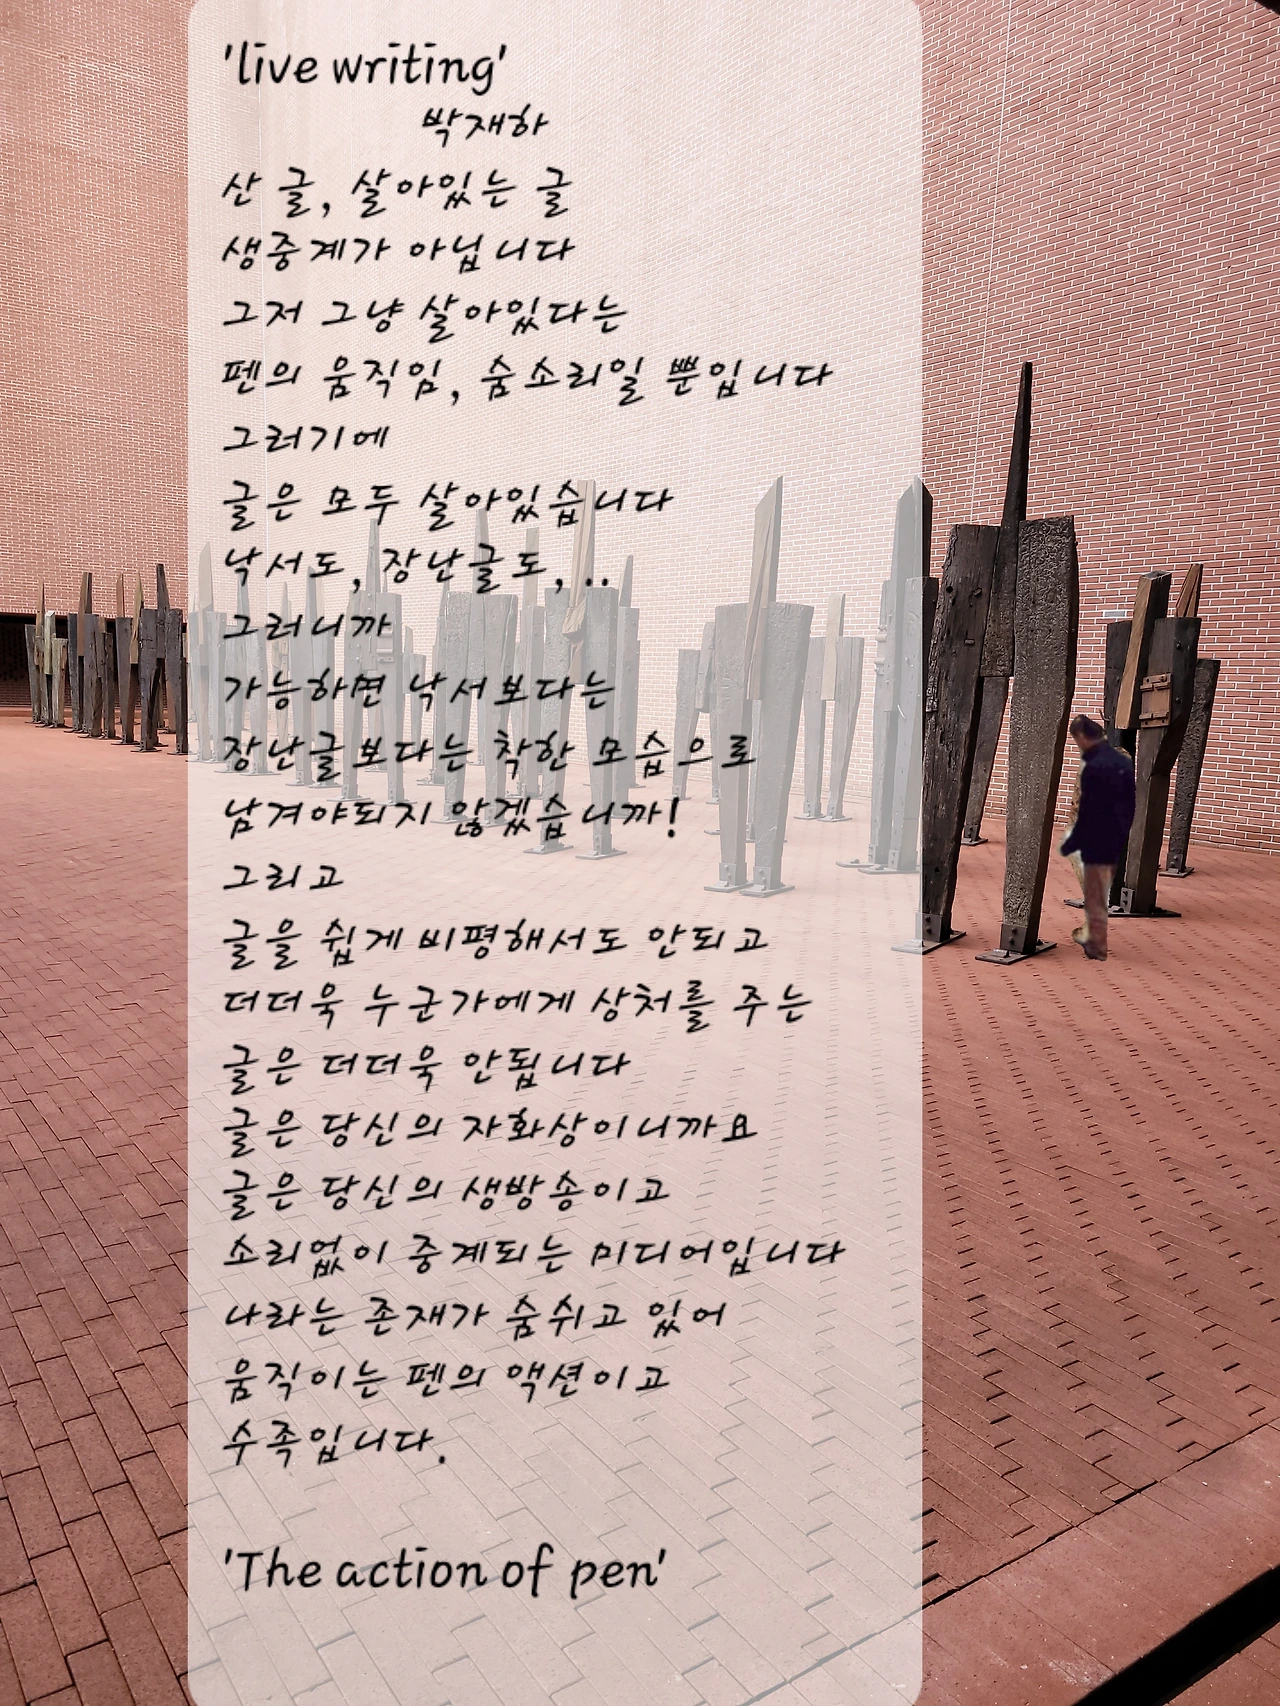 'live writing'
박재하
산 글, 살아있는 글
생중계가 아닙니다
그저 그냥 살아있다는
펜의 움직임, 숨소리일 뿐입니다
그러기에
글은 모두 살아있습니다
낙서도, 장난글도, ..
그러니까
가능하면 낙서보다는
장난글보다는 착한 모습으로
남겨야되지 않겠습니까!
그리고
글을 쉽게 비평해서도 안되고
더더욱 누군가에게 상처를 주는
글은 더더욱 안됩니다
글은 당신의 자화상이니까요
글은 당신의 생방송이고
소리없이 중계되는 미디어입니다
나라는 존재가 숨쉬고 있어
움직이는 펜의 액션이고
수족입니다.
'The action of pen'